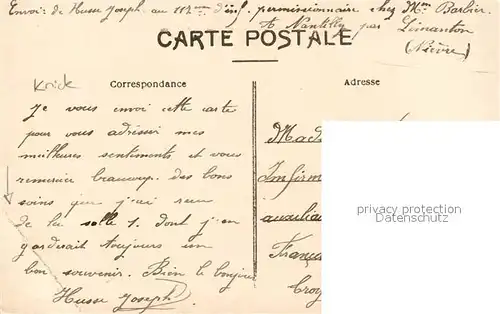 Envoi de Husse Joseph au 112ème d'inf. permissionnaire chez Mme Barbier
A Nantilly par Limanton
(Nièvre)
CARTE POSTALE
Knick
Correspondance
Adresse
Je vous envoi cette carte
pour vous adresser mes
meilleures sentiments et vous
remercier beaucoup des bons
soins que j'ai reçu
de la salle 1. dont j'en
garderait toujours un
bon souvenir. Bien le bonjour
Husse Joseph
Mad
Infirm
auxilia
Franç
Croi
privacy protection
Datenschutz